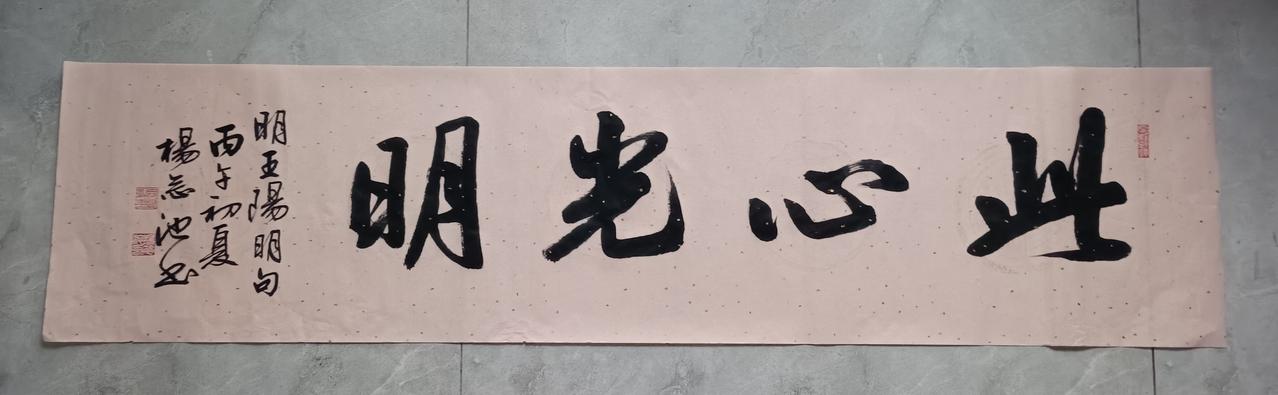 此心光明
明王陽明句
丙午初夏
楊志池书